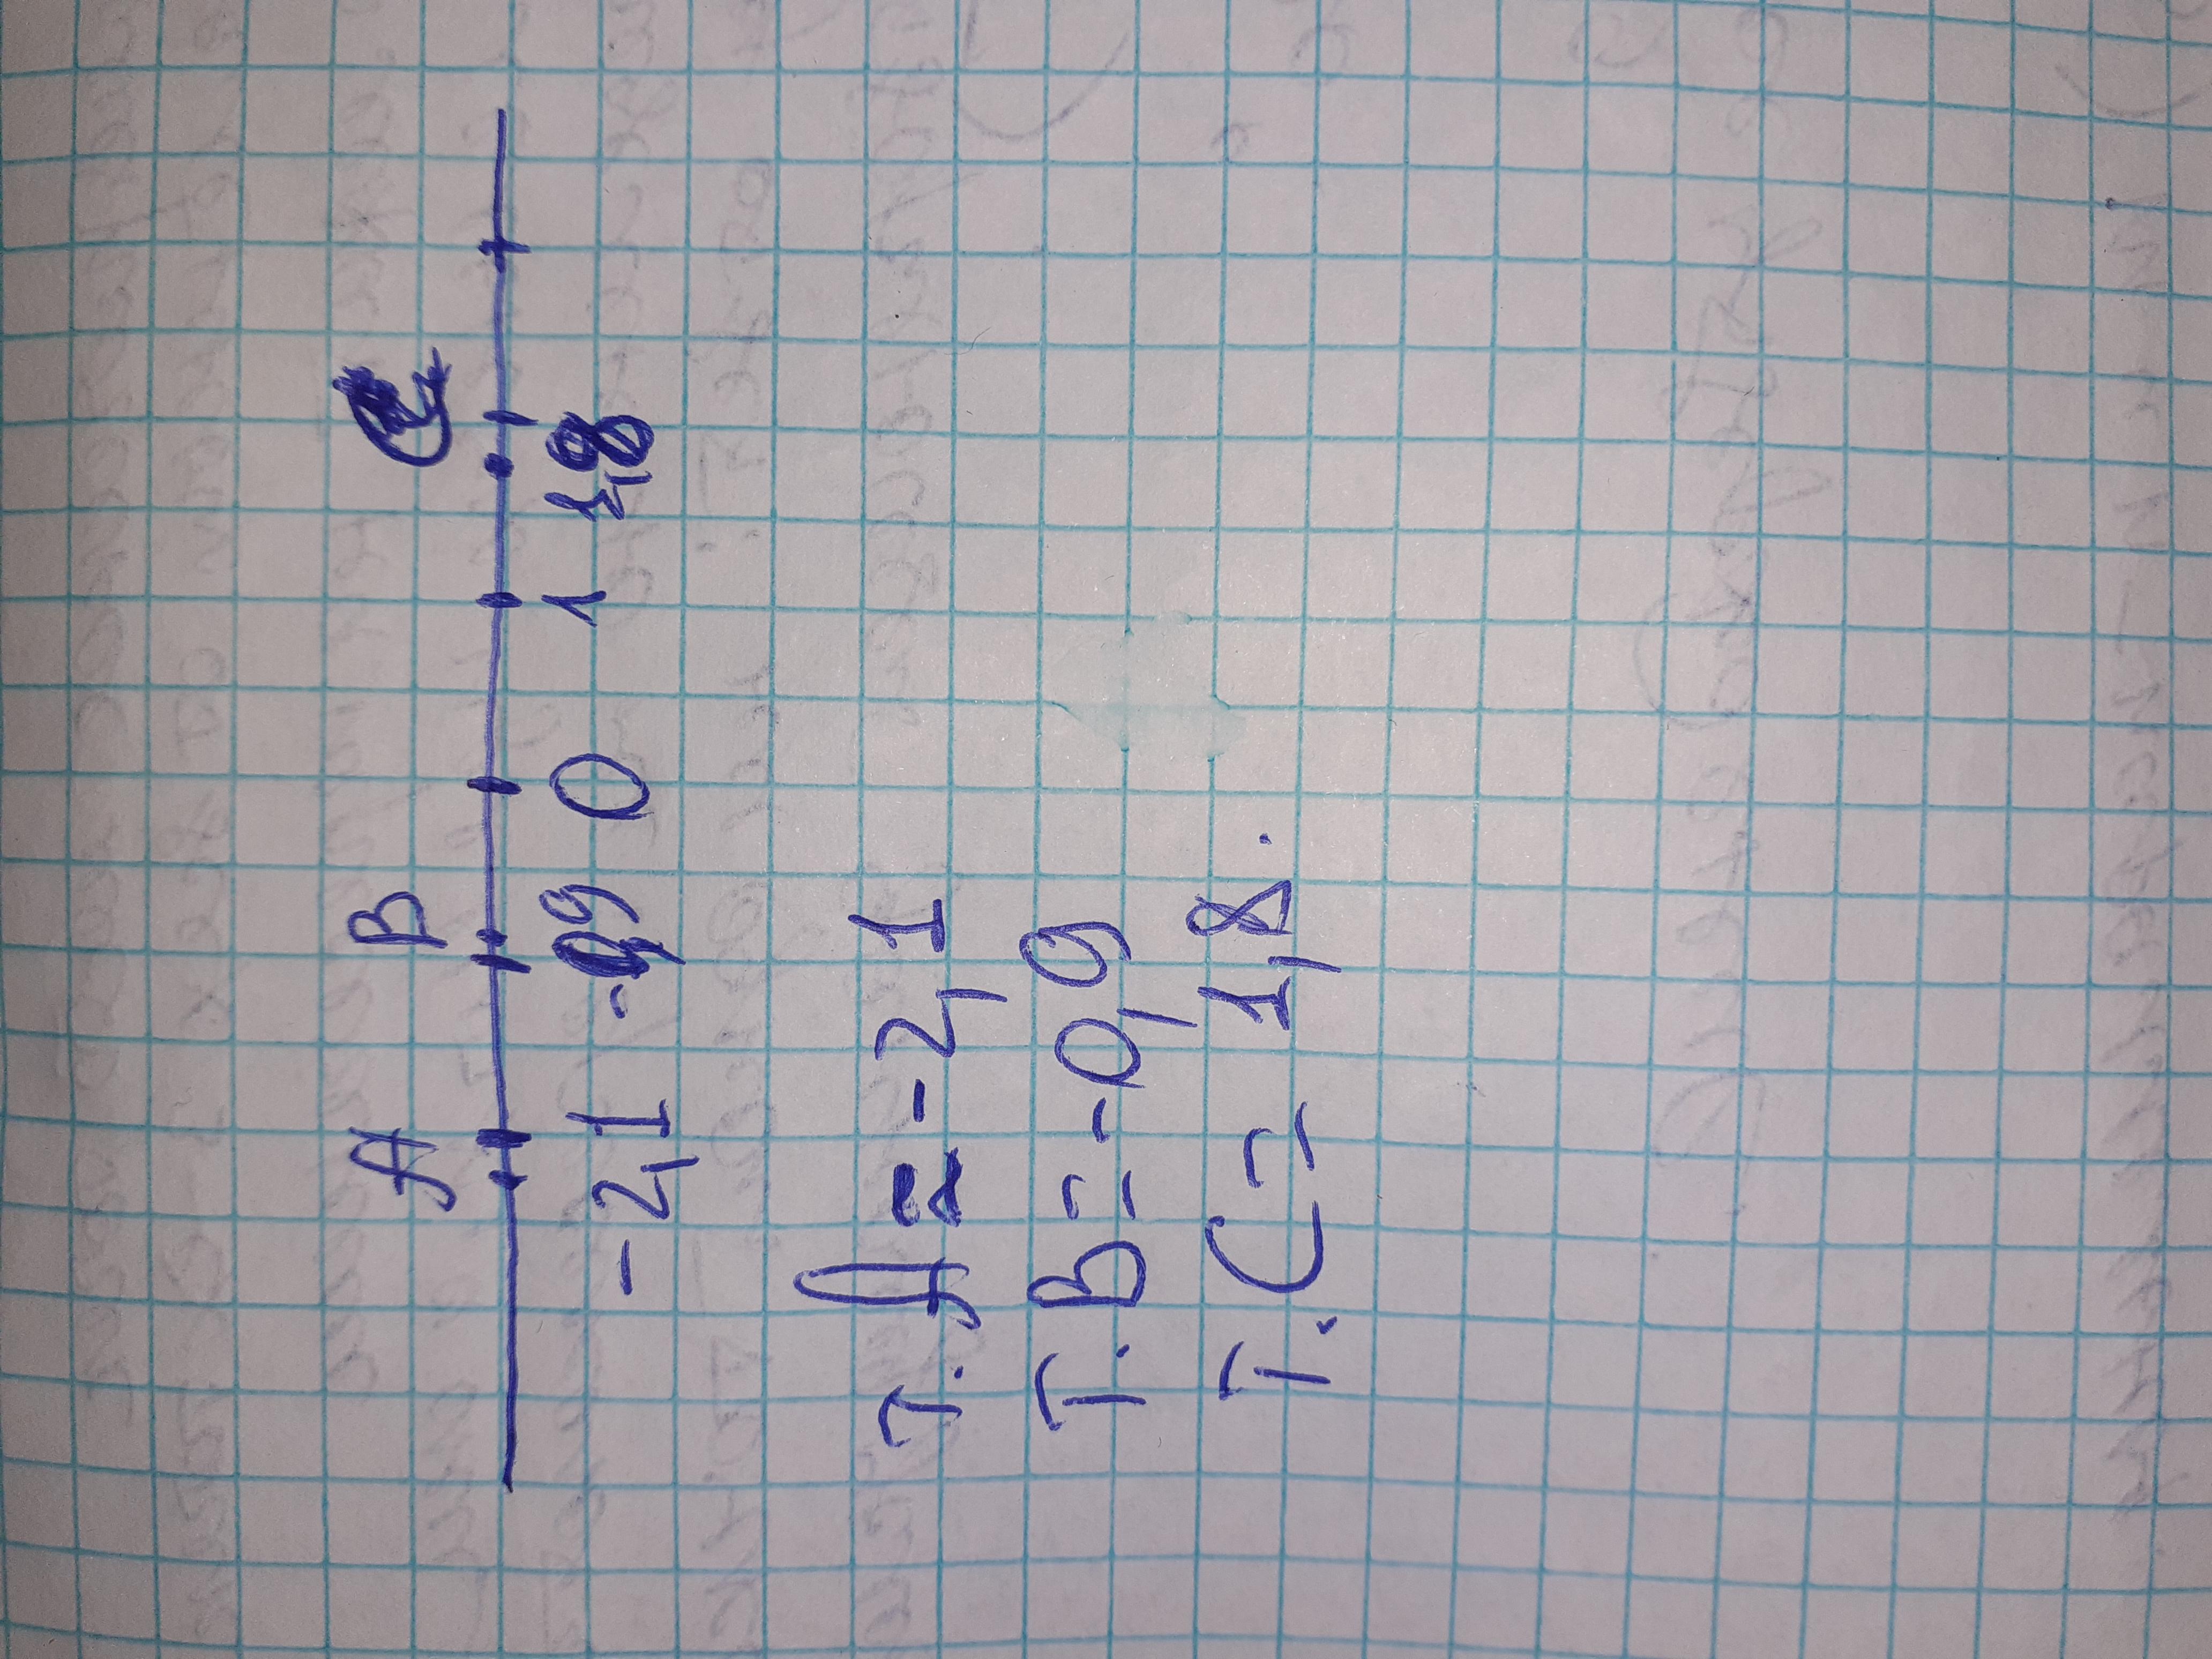 А В С
-2,1 -0,9 0 1 1,8
т. А = -2,1
т. В = -0,9
т. С = 1,8.